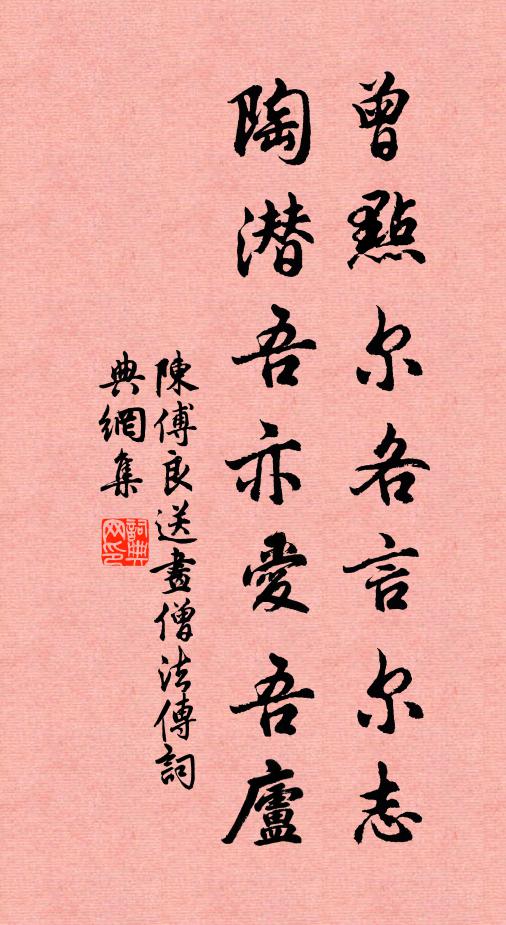 曾點尔各言尔志
陶潜吾亦愛吾廬
陳傅良送畫僧法傳詞
典網集
詞典網印